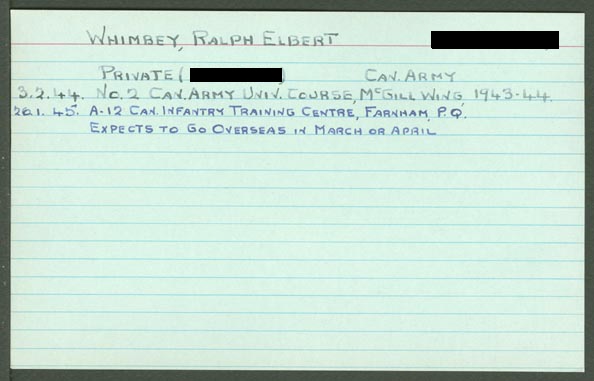 WHIMBEY, RALPH ELBERT
PRIVATE ( ) CAN. ARMY
3.2.44. No. 2 CAN. ARMY UNIV. COURSE, McGILL WING 1943-44.
20.1.45. A-12 CAN. INFANTRY TRAINING CENTRE, FARNHAM, P.Q.
EXPECTS TO GO OVERSEAS IN MARCH OR APRIL